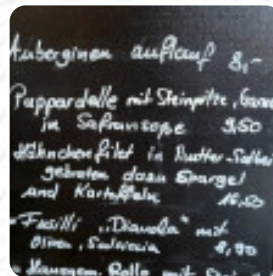 Auberginen auflauf 8,-
Pappardelle mit Steinpilze,
in Safransoße 9,50
Hähnchenfilet in Butter-Salbei
gebraten dazu Spargel
und Kartoffeln 16,50
- Fusilli „Diavola" mit
Oliven, 8,90
mit